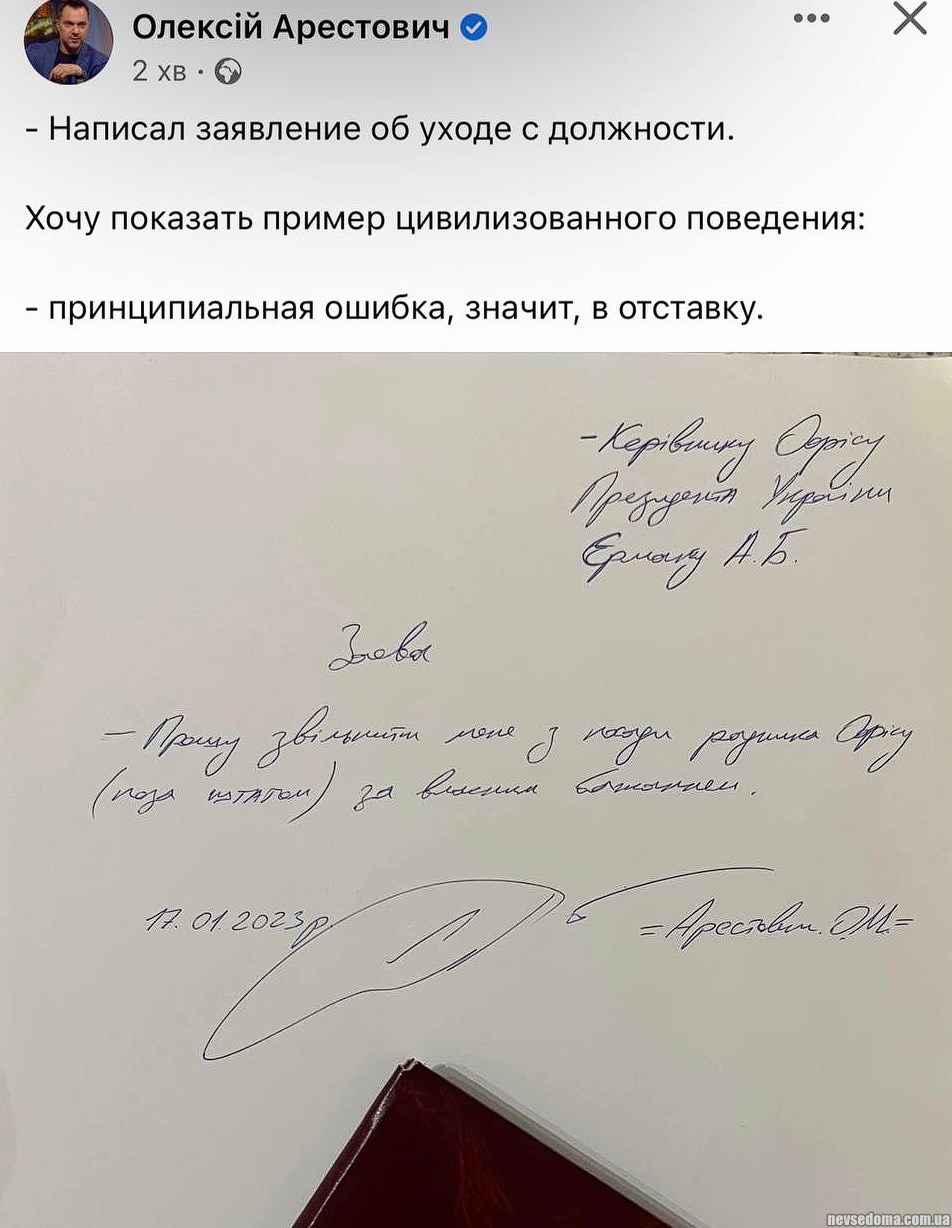 Олексій Арестович
2 хв ·
- Написал заявление об уходе с должности.
Хочу показать пример цивилизованного поведения:
- принципиальная ошибка, значит, в отставку.
- Керівнику Офісу
Президента України
Єрмаку А.Б.
Заява
- Прошу звільнити мене з посади радника Офісу
(поза штатом) за власним бажанням.
17.01.2023р
=Арестович. О.М.=
nevsedoma.com.ua